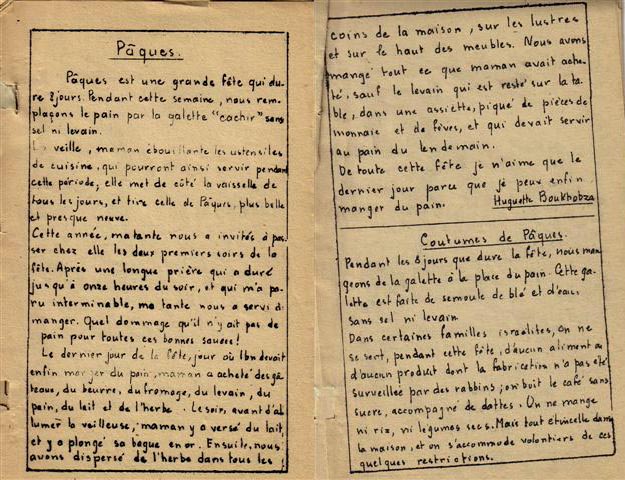 Pâques.
Pâques est une grande fête qui du-
re 8 jours. Pendant cette semaine, nous rem-
plaçons le pain par la galette "cachir" sans
sel ni levain.
La veille, maman ébouillante les ustensiles
de cuisine, qui pourront ainsi servir pendant
cette période, elle met de côté la vaisselle de
tous les jours, et tire celle de Pâques, plus belle
et presque neuve.
Cette année, ma tante nous a invités à pas-
ser chez elle les deux premiers soirs de la
fête. Après une longue prière qui a duré
jusqu'à onze heures du soir, et qui m'a pa-
ru interminable, ma tante nous a servi à
manger. Quel dommage qu'il n'y ait pas de
pain pour toutes ces bonnes sauces!
Le dernier jour de la fête, jour où l'on devait
enfin manger du pain, maman a acheté des gâ-
teaux, du beurre, du fromage, du levain, du
pain, du lait et de l'herbe. Le soir, avant d'al
lumer la veilleuse, maman y a versé du lait,
et y a plongé sa bague en or. Ensuite, nous
avons dispersé de l'herbe dans tous les
coins de la maison, sur les lustres
et sur le haut des meubles. Nous avons
mangé tout ce que maman avait ache-
té, sauf le levain qui est resté sur la ta-
ble, dans une assiette, piqué de pièces de
monnaie et de fèves, et qui devait servir
au pain du lendemain.
De toute cette fête je n'aime que le
dernier jour parce que je peux enfin
manger du pain. Huguette Boukhobza
Coutumes de Pâques.
Pendant les 8 jours que dure la fête, nous man
geons de la galette à la place du pain. Cette ga-
lette est faite de semoule de blé et d'eau,
sans sel ni levain.
Dans certaines familles israélites, on ne
se sert, pendant cette fête, d'aucun aliment ou
d'aucun produit dont la fabrication n'a pas été
surveillée par des rabbins; on boit le café sans
sucre, accompagné de dattes. On ne mange
ni riz, ni légumes secs. Mais tout étincelle dans
la maison, et on s'accommode volontiers de ces
quelques restrictions.